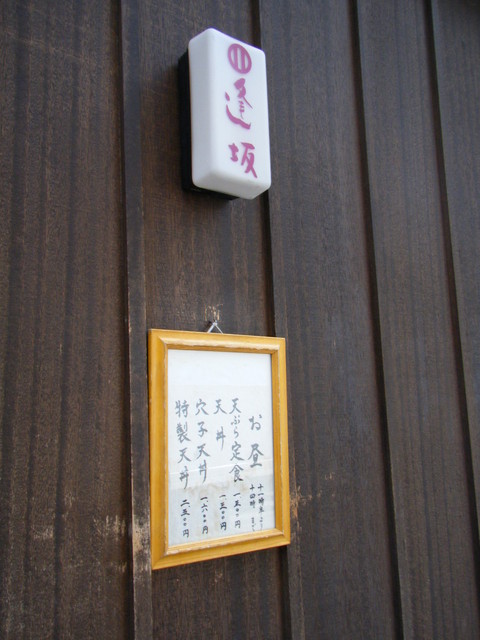 逢坂
お昼 十一時半より
十四時
天ぷら定食 一五〇〇円
天丼 一三〇〇円
穴子天丼 一六〇〇円
特製天丼 二五〇〇円